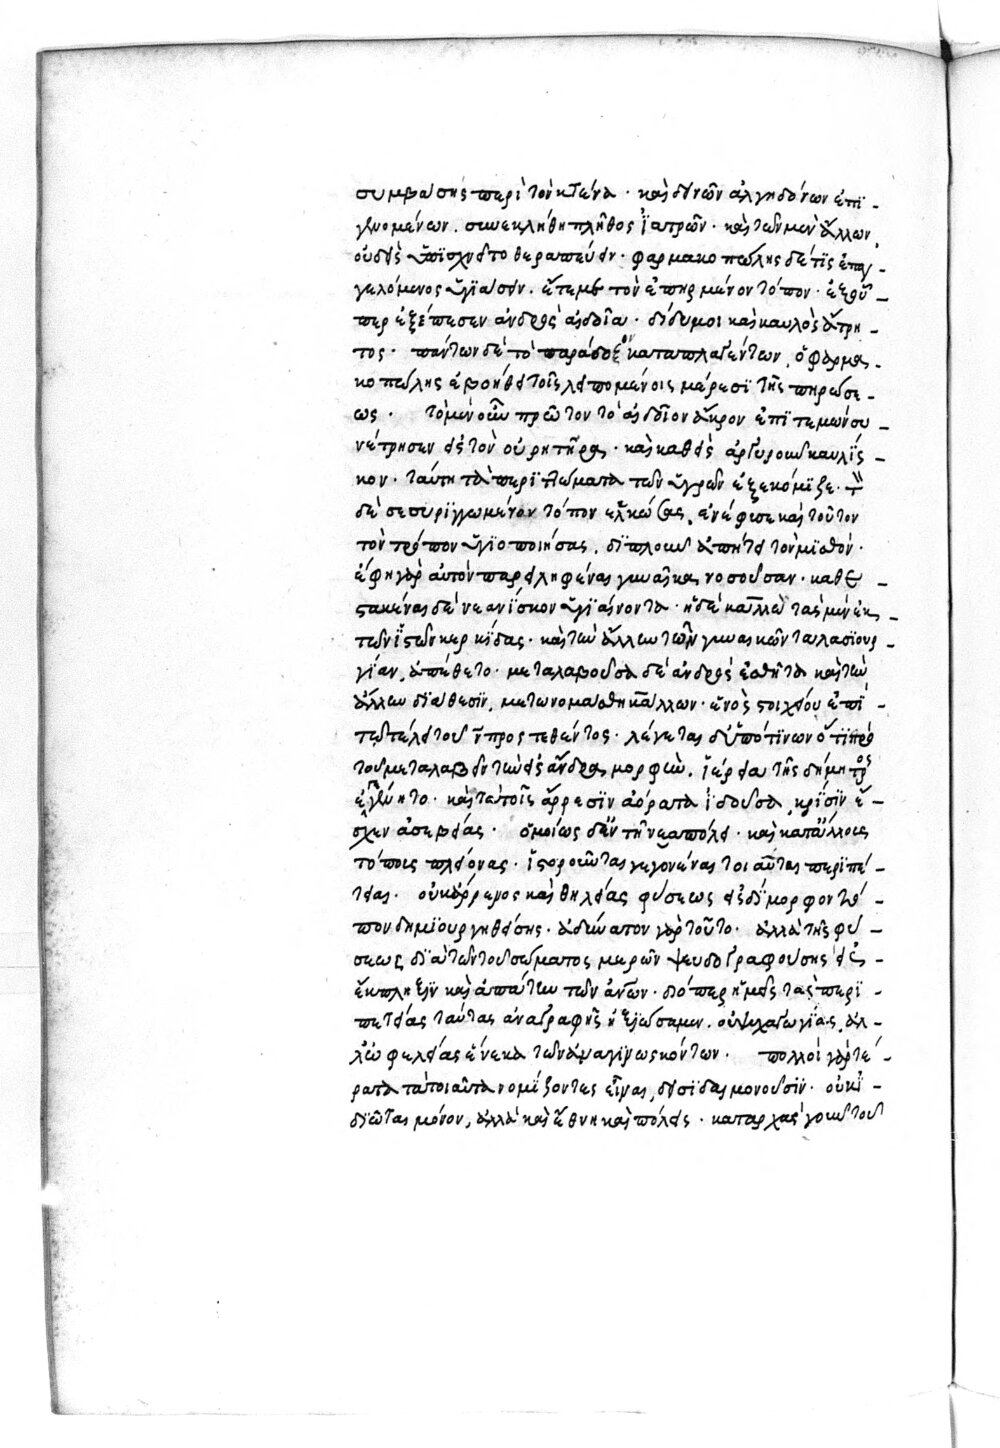 συμβάσης περὶ τὸν κτένα · καὶ δεινῶν ἀλγηδόνων ἐπϊ -
γενομένων . συνεκλήθη πλῆθος ἰατρῶν · καὶ τῶν μὲν ἄλλων
οὐδεὶς ὑπϊσχνεῖτο θεραπεύειν · φαρμακοπώλης δέ τϊς ἐπαγ -
γελόμενος ὑγϊάσειν . ἔτεμε τὸν ἐπῃρμένον τόπον · ἐξ οὗ -
περ ἐξέπεσεν ἀνδρὸς αἰδοῖα · δίδυμοι καὶ καυλὸς ἄτρη -
τος · πάντων δὲ τὸ παράδοξον καταπλαγέντων , ὁ φαρμα -
κοπώλης ἐβοήθει τοῖς λειπομένοις μέρεσϊ τῆς πηρώσε -
ως · τὸ μὲν οὖν πρῶτον τὸ αἰδοῖον ἄκρον ἐπϊτεμὼν συ -
νέτρησεν εἰς τὸν οὐρητῆρα · καὶ καθεὶς ἀργυροῦν καυλϊσ -
κον · ταύτῃ τὰ περϊττώματα τῶν ὑγρῶν ἐξεκόμϊζε · τὸν
δὲ σεσυριγγωμένον τόπον ἑλκώσας , συνέφυσε καὶ τοῦτον
τὸν τρόπον ὑγϊοποιήσας . διπλοῦν ἀπῄτει τὸν μϊσθόν ·
ἔφη γὰρ αὐτὸν παρειληφέναι γυναῖκα νοσοῦσαν · καθε -
στακέναι δὲ νεανϊσκον ὑγϊαίνοντα · ἡ δὲ καλλὼ τὰς μὲν ἐκ
τῶν ἱστῶν κερκίδας · καὶ τὴν ἄλλην τῶν γυναικῶν ταλασϊουρ -
γίαν , ἀπέθετο · μεταλαβοῦσα δὲ ἀνδρὸς ἐσθῆτα καὶ τὴν
ἄλλην διάθεσϊν , μετωνομάσθη κάλλων · ἑνὸς στοιχείου ἐπὶ -
τῷ τέλει τοῦ ν προστεθέντος · λέγεται δ' ὑπό τϊνων ὅτϊ πρὸ
τοῦ μεταλαβεῖν τὴν εἰς ἄνδρα μορφὴν . ἱέρεια τῆς δήμητρος
ἐγεγένητο · καὶ τὰ τοῖς ἄρρεσϊν ἀόρατα ἰδοῦσα , κρίσϊν ἔ -
σχεν ἀσεβείας · ὁμοίως δ' ἐν τῇ νεαπόλει · καὶ κατ' ἄλλους
τόπους πλείονας · ἱστοροῦνται γεγονέναι τοιαῦται περϊπέ -
τειαι · οὐκ ἄρρενος καὶ θηλείας φύσεως εἰς δίμορφον τύ -
πον δημϊουργηθείσης · ἀδύνατον γὰρ τοῦτο · ἀλλὰ τῆς φύ -
σεως διὰ τῶν τοῦ σώματος μερῶν ψευδογραφούσης εἰς -
ἔκπληξϊν καὶ ἀπάτην τῶν ἀνων · διόπερ ἡμεῖς τὰς περϊ -
πετείας ταύτας ἀναγραφῆς ἠξϊώσαμεν . οὐ ψυχαγωγίας , ἀλ -
λ' ὠφελείας ἕνεκα τῶν ἀναγϊνωσκόντων . πολλοὶ γὰρ τέ -
ρατα τὰ τοιαῦτα νομίζοντες εἶναι , δεισϊδαιμονοῦσϊν · οὐκ ἰ -
διῶται μόνον , ἀλλὰ καὶ ἔθνη καὶ πόλεις · κατ' ἀρχὰς γοῦν τοῦ